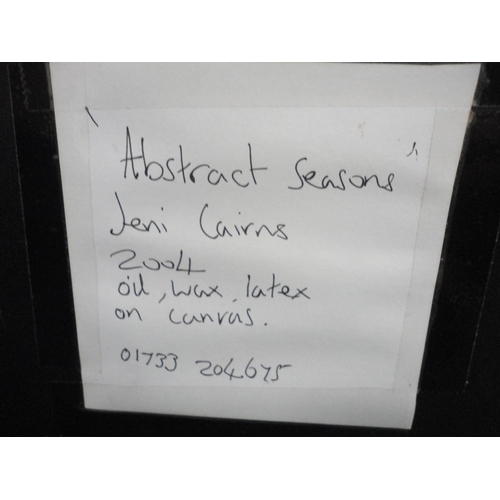 "Abstract Seasons"
Jeni Cairns
2004
oil, wax, latex
on canvas.
01733 204675